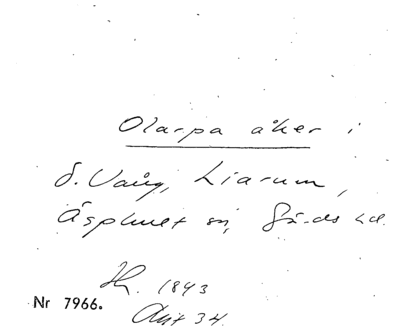 Olarpa åker i
Ö. Vång, Liarum,
Äsphult sn, Gärds hd.
1843
Nr 7966.
Akt 34